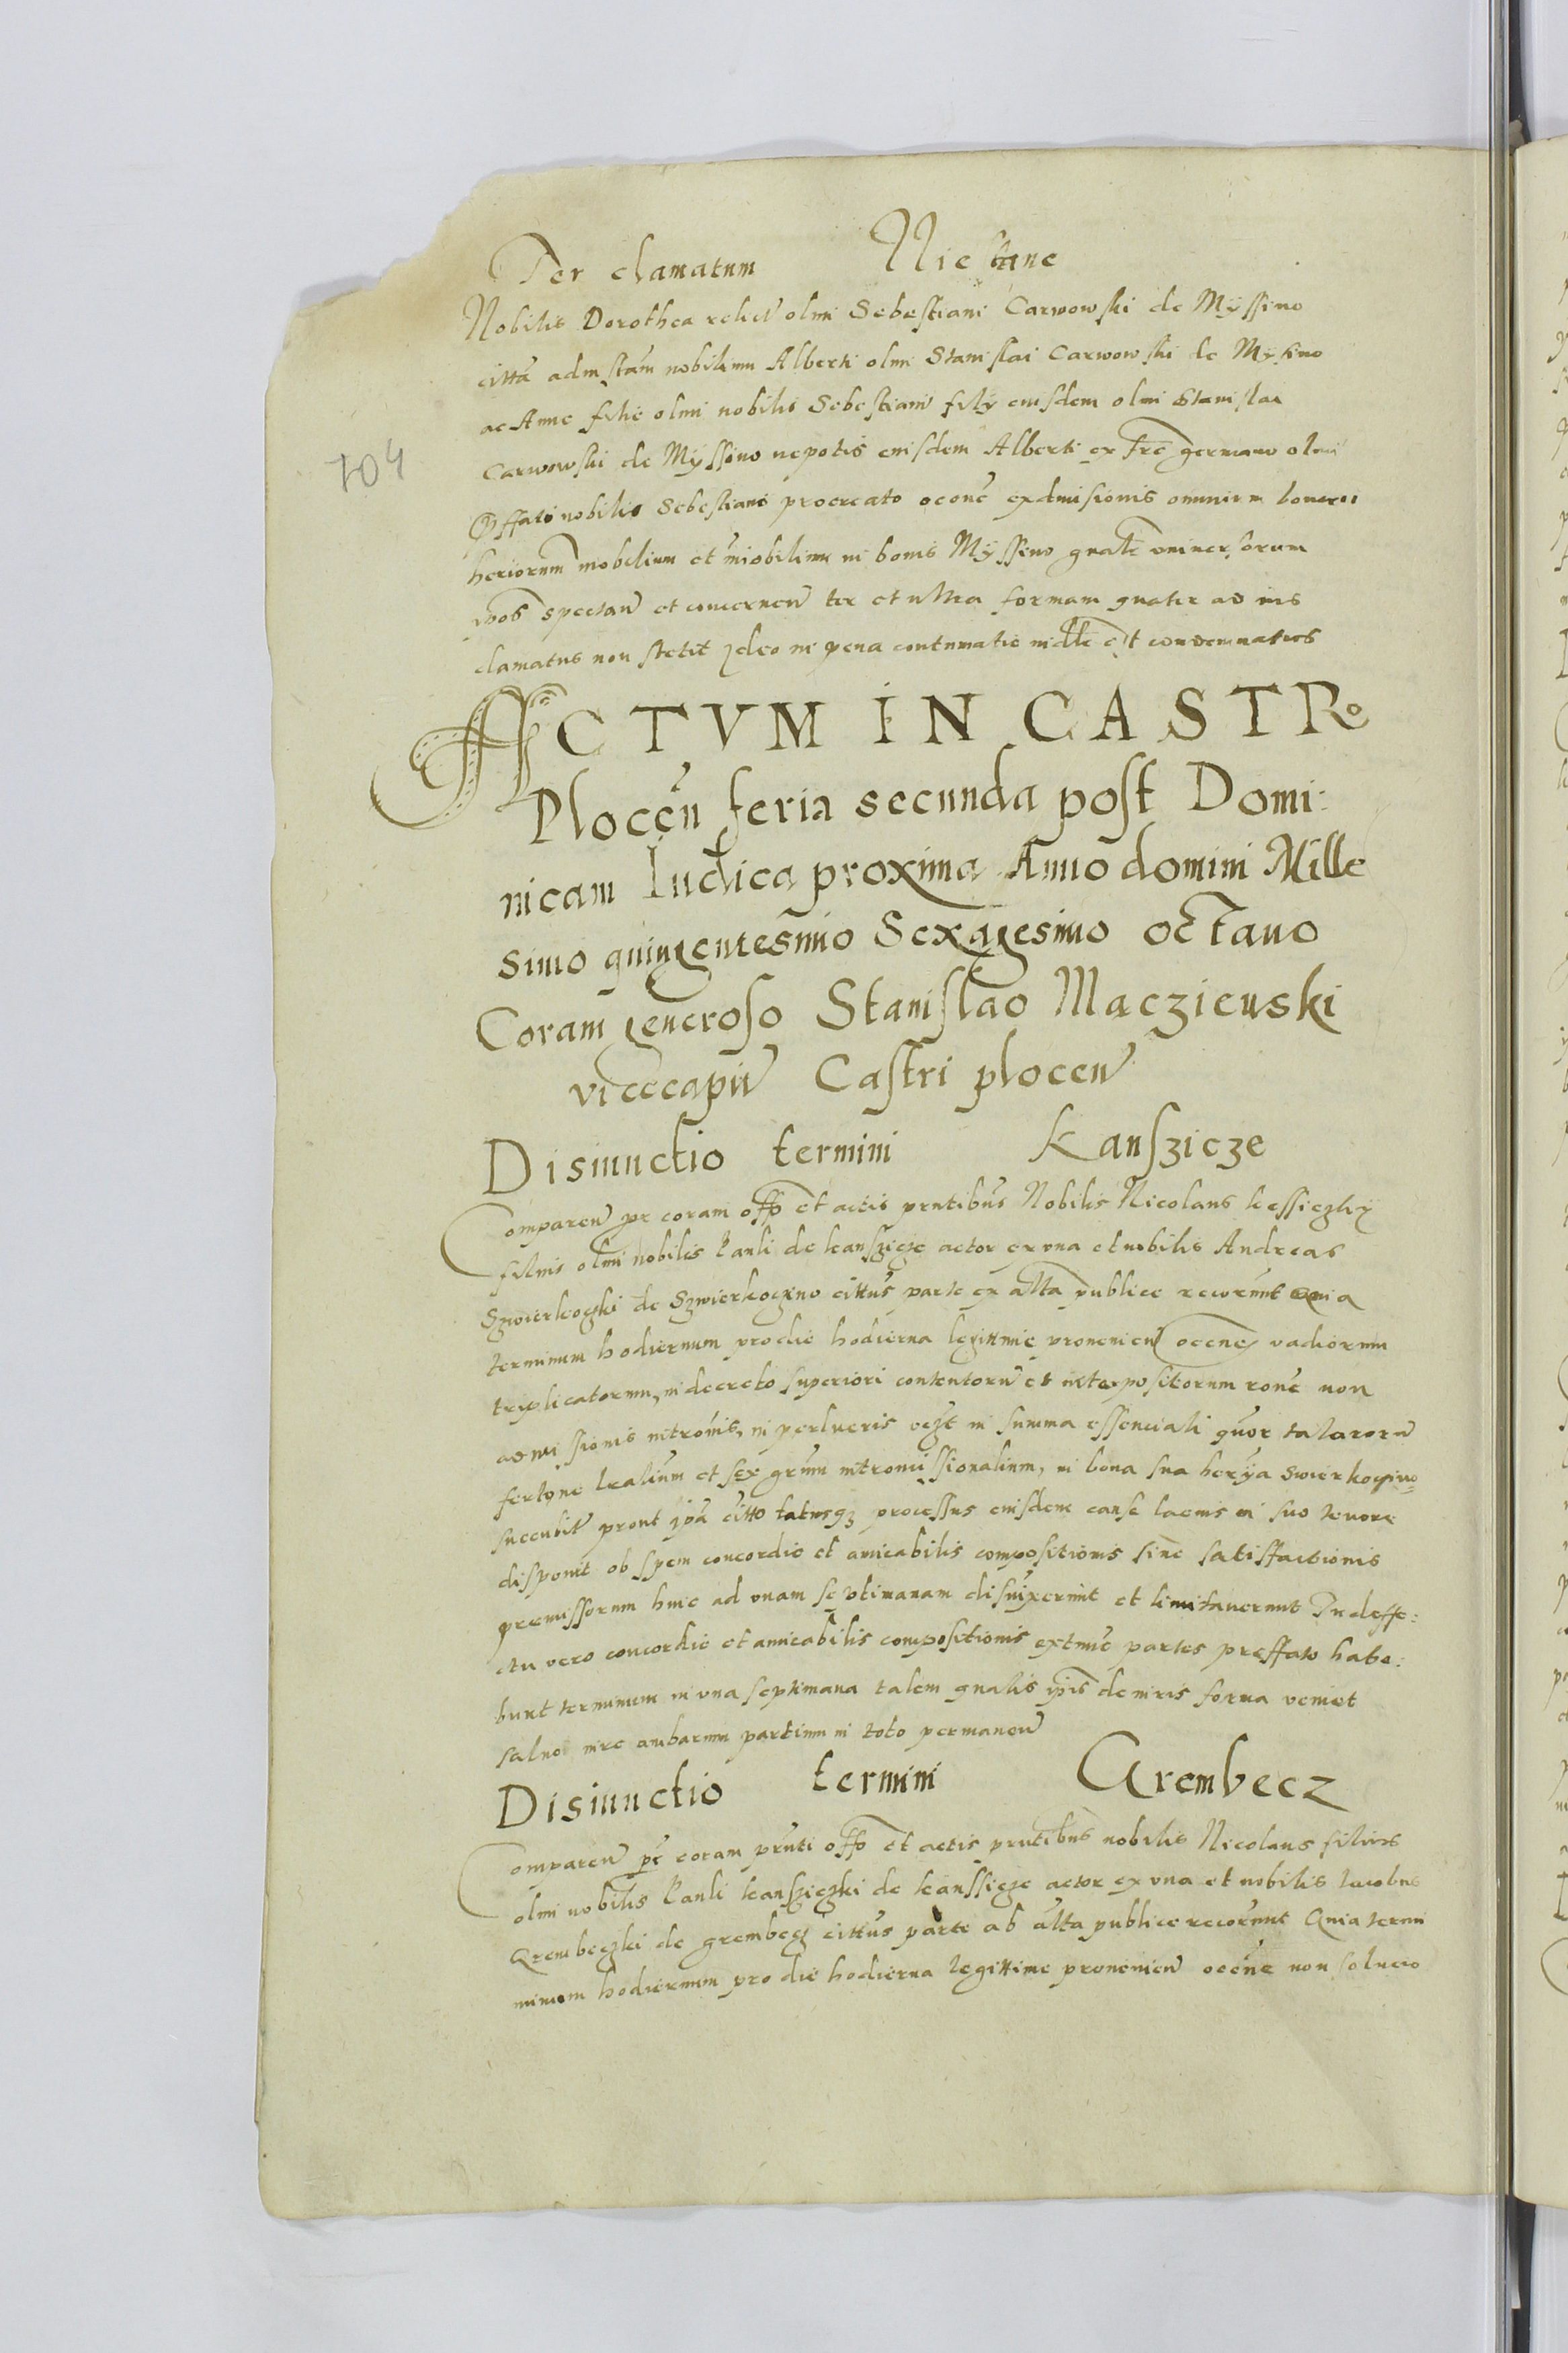 Per clamatum
Nobilis Dorothea relict olmi Sebestiani Carwowski de Myssino
citta ad instam nobilium Alberti olmi Stanislai Carwowski de Mysino
ac Anne filie olmi nobilis Sebestiani filÿ eiusdem olmi Stanislai
104
Carwowski de Mÿssino nepotis eiusdem Alberti ex fre germano olmi
nobilis Sebestiano procreato occone exdmisionis omnium bonorum
mobilium et imobilium in bonis Mÿssino gnalr universorum
spectan et concernen ter et ultra formam gnalr ad ius
clamatus non stetit Ideo in pena contumatie est condemnatus
ACTVM IN CASTRo
Plocen feria secunda post Domi:
nicam Iudica proxima Anno domini Mille
simo quingentesimo Sexagesimo octavo
Coram generoso Stanislao Maczieuski
vicecapit Castri plocen
Disiunctio termini Kanszicze
Comparen pr coram offo et actis prntibus Nobilis Nicolaus
filius olmi nobilis Pauli de kanszicze actor ex una et nobilis Andreas
Szwierkoczki de Szwierkoczino cittus parte ex alta publice recorunt quia
terminum hodiernum pro die hodierna legittime provenien occne vadiorum
triplicatorum, in decreto superiori contentoru et interpositorum rone non
admissionis intromis, in perlucris vczt in summa essenciali
fertone lcalium et sex grum intromissionalium, in bona sua herÿa Swierkocino
succubit prout ipa citto totusqz processus eiusdem cause lacius in suo tenore
disponit ob spem concordie et amicabilis compositionis sine satisfactionis
premissorum hinc ad unam septimanam disiunxerunt et limitaverunt In deffe:
ctu vero concordie et amicabilis compositionis extunc partes preffato habe:
bunt terminum in una septimana talem qualis ipis de iuris forma veniet
salvo iure ambarum partium in toto permanen
Disiunctio termini Grembecz
Comparen pr coram prnti offo et actis prntibus nobilis Nicolaus filius
olmi nobilis Pauli kansziczki de kanssicze actor ex una et nobilis Iacobus
Grembeczki de grembecz cittus parte ab alta publice recorunt Quia termi
minum hodiernum pro die hodierna legittime provenien occne non solucio